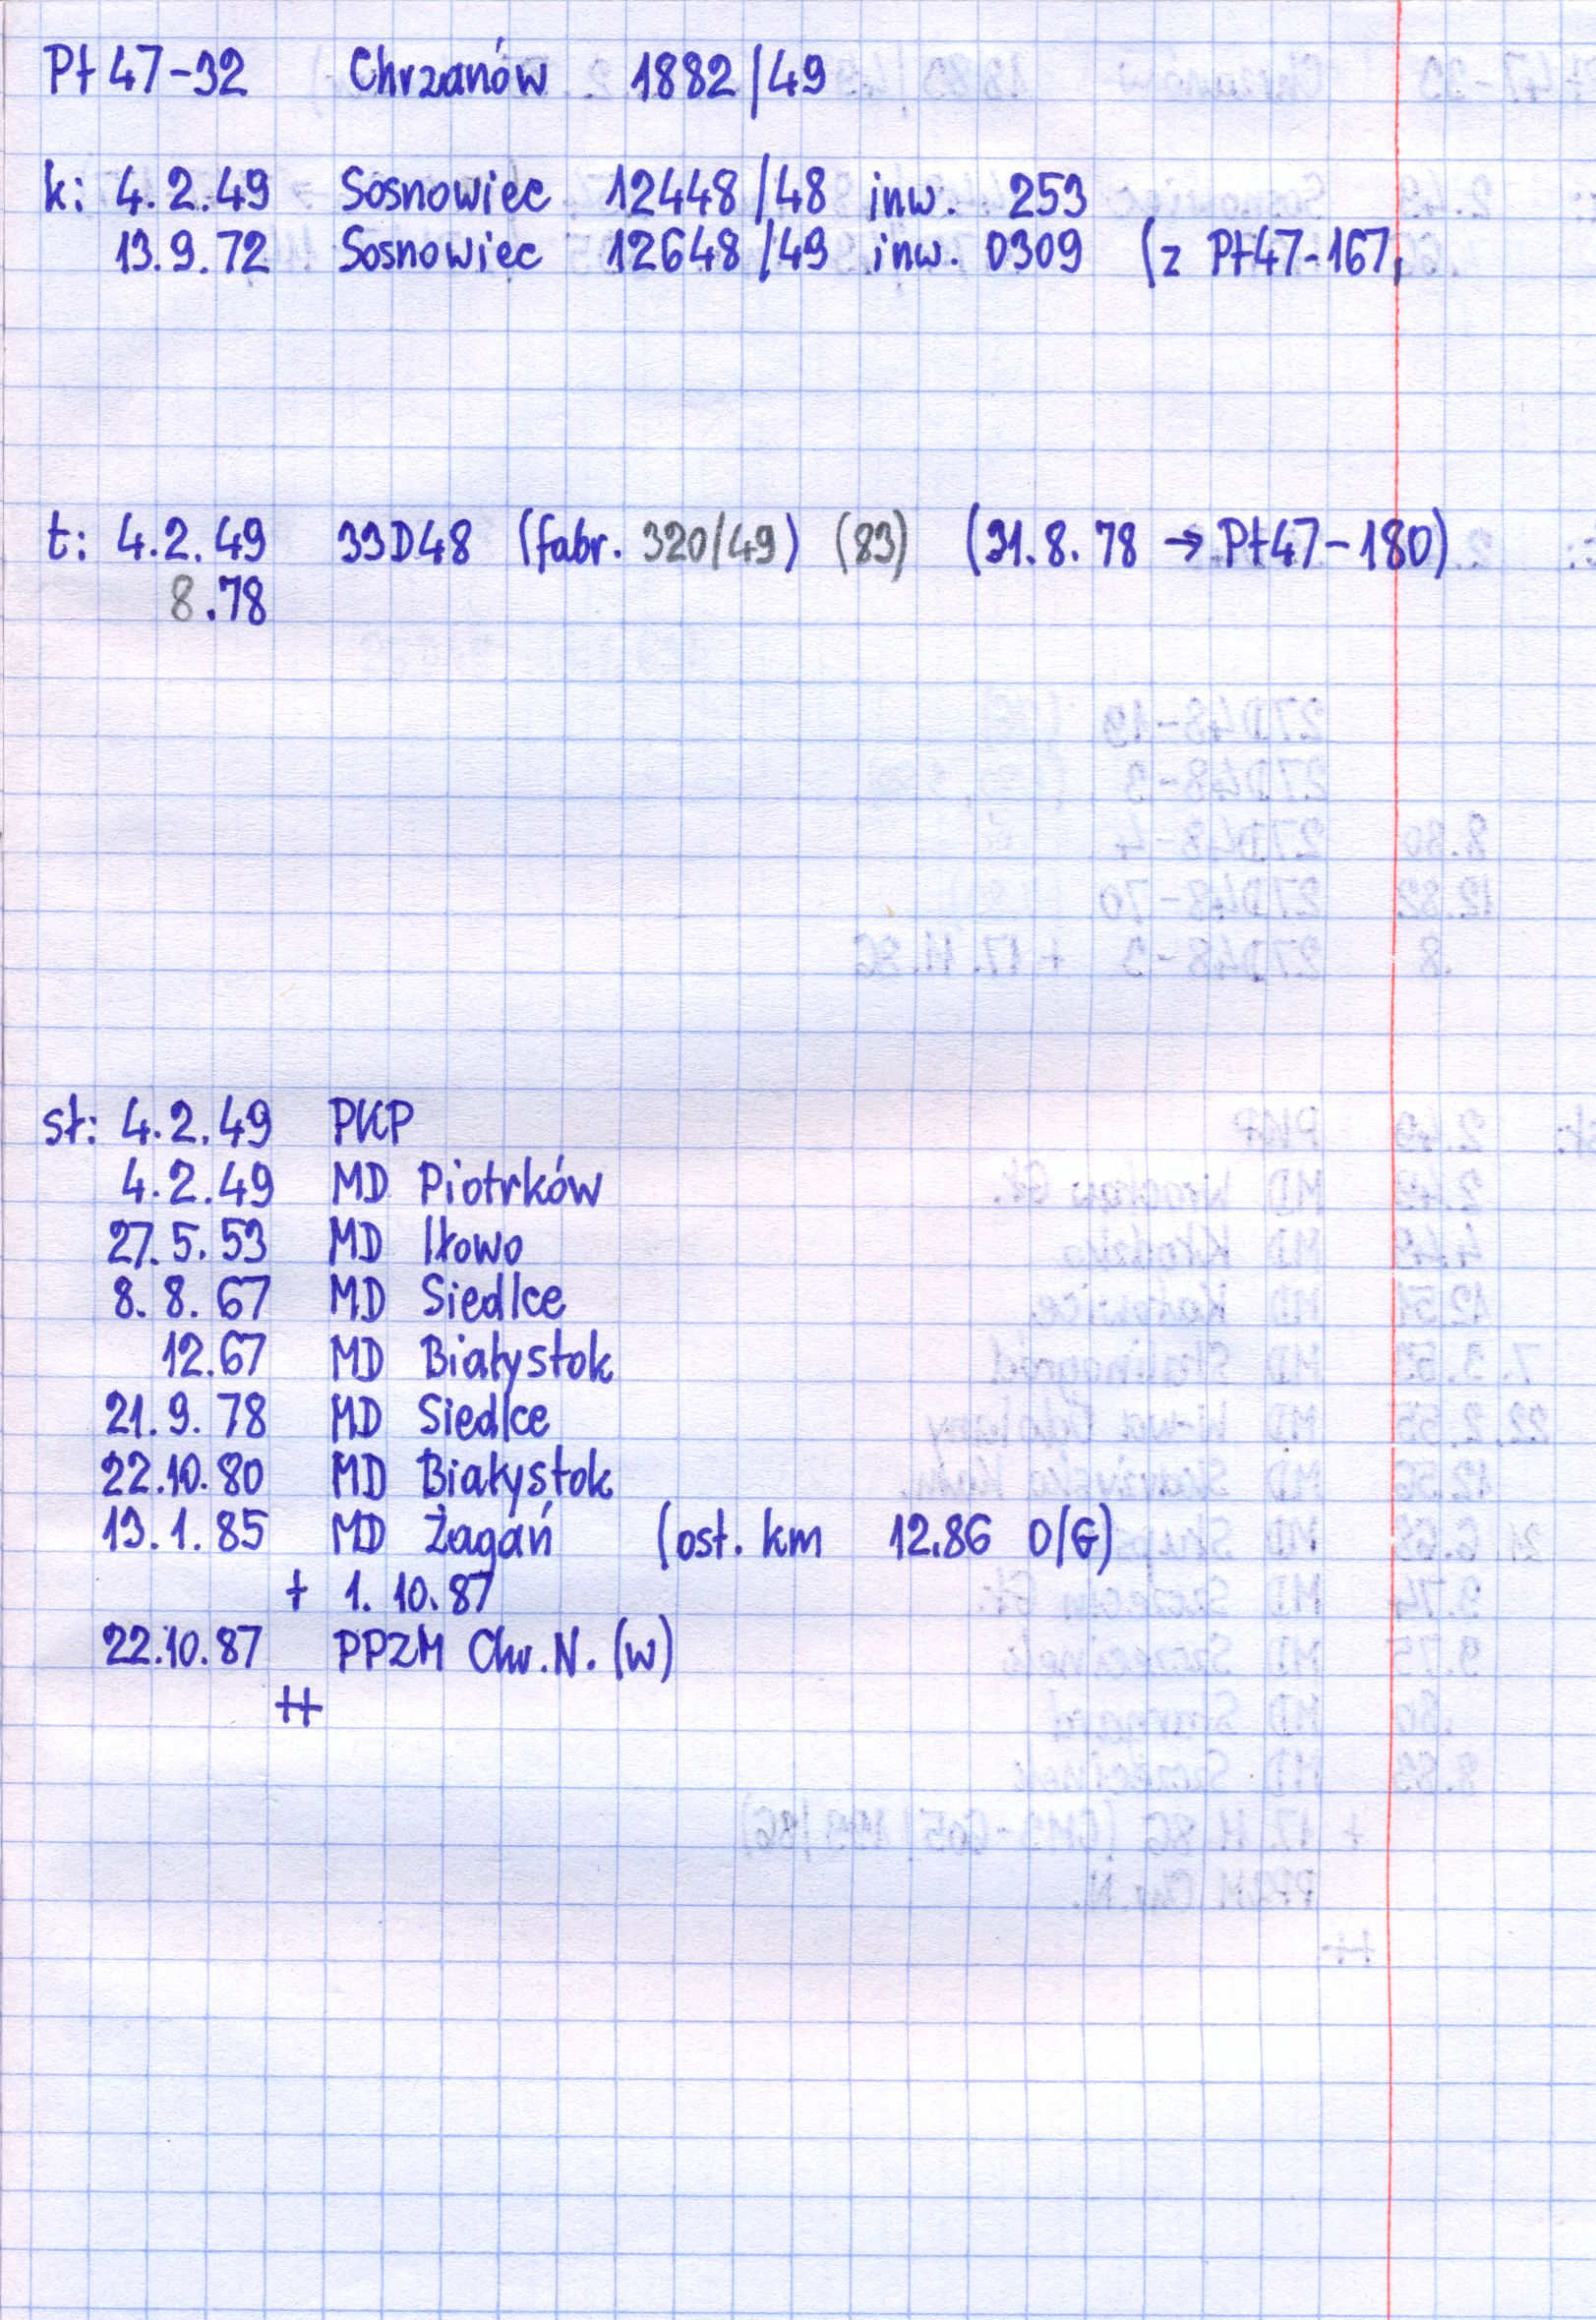 Pt47-32 Chrzanów 1882/49
k: 4.2.49 Sosnowiec 12448/48 inw. 253
13.9.72 Sosnowiec 12648/49 inw. 0309 (z Pt47-167,
t: 4.2.49 33D48 (fabr. 320/49) (83) (31.8.78 → Pt47-180)
8.78
st: 4.2.49 PKP
4.2.49 MD Piotrków
27.5.53 MD Iłowo
8.8.67 MD Siedlce
12.67 MD Białystok
21.9.78 MD Siedlce
22.10.80 MD Białystok
13.1.85 MD Żagań (ost. km 12.86 0/G)
+ 1.10.87
22.10.87 PPZM Chw.N. (w)
++